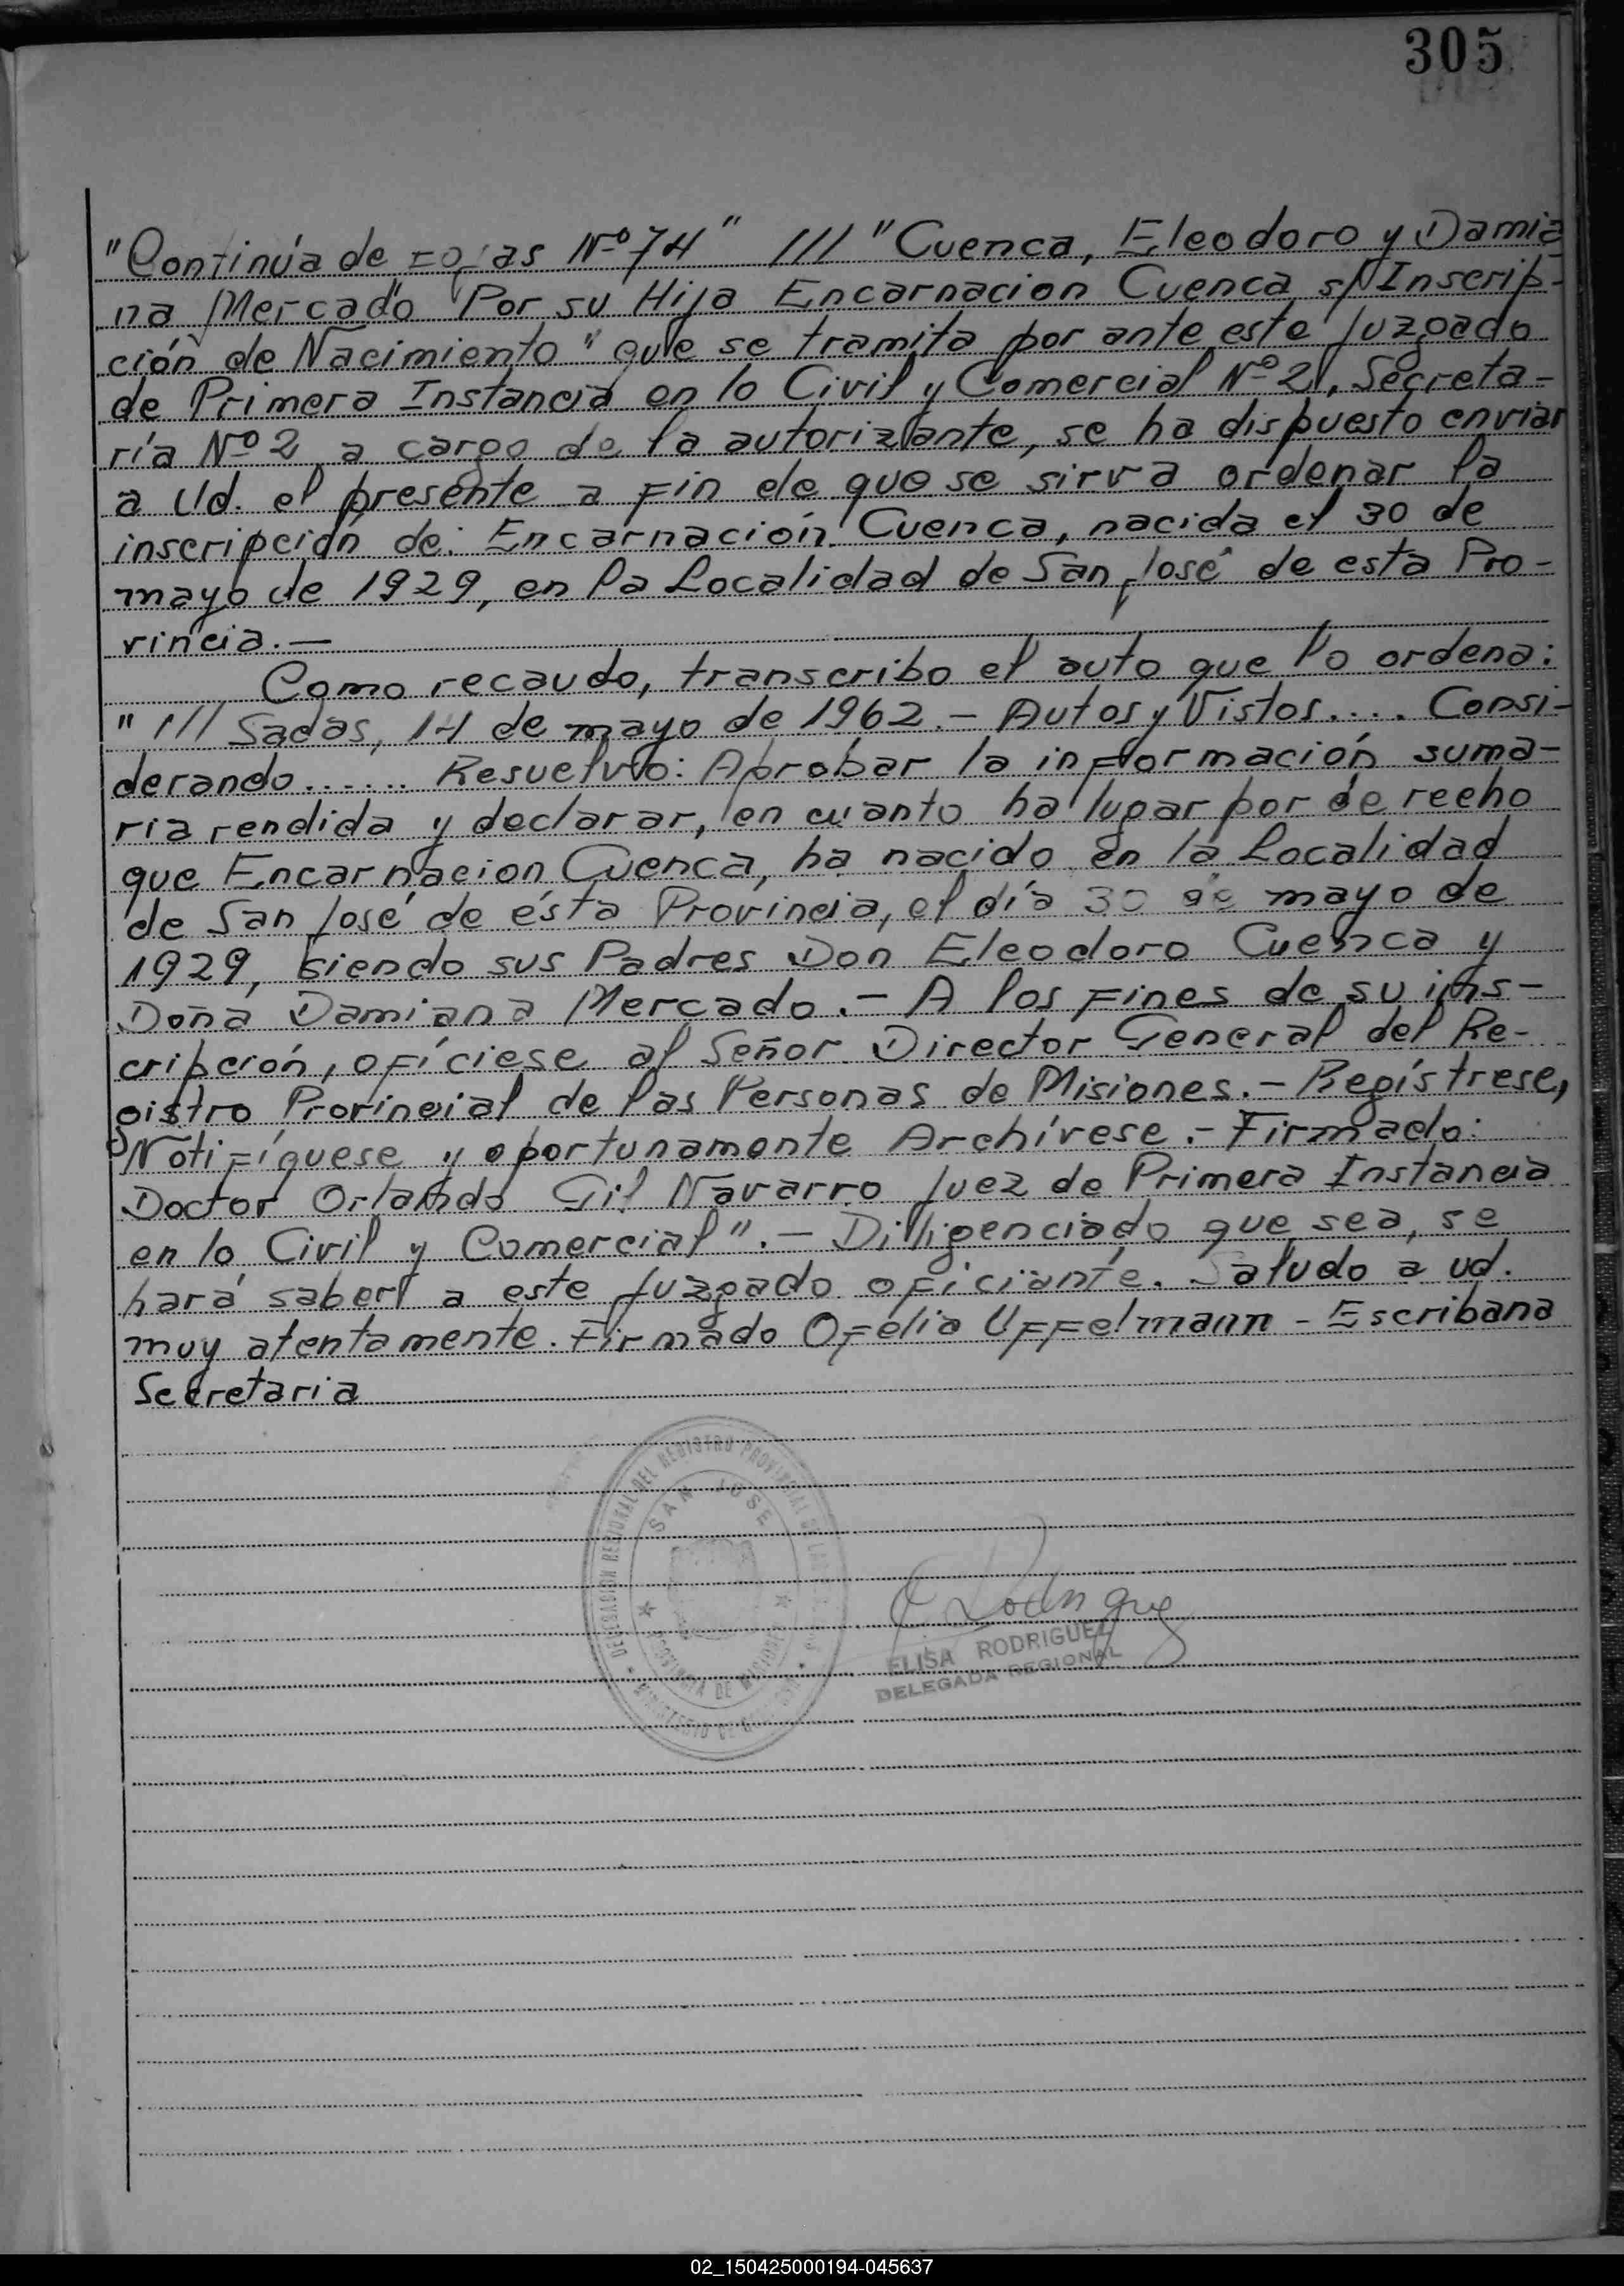 305
"Continúa de Fojas Nº 74" /// "Cuenca, Eleodoro y Damia
na Mercado Por su Hija Encarnacion Cuenca s/Inscrip-
ción de Nacimiento" que se tramita por ante este Juzgado
de Primera Instancia en lo Civil y Comercial Nº 2, Secreta-
ría Nº 2 a cargo de la autorizante, se ha dispuesto enviar
a Ud. el presente a Fin de que se sirva ordenar la
inscripción de: Encarnación Cuenca, nacida el 30 de
mayo de 1929, en la Localidad de San José de esta Pro-
vincia.—
Como recaudo, transcribo el auto que lo ordena:
"/// Sadas, 14 de mayo de 1962.- Autos y Vistos.... Consi-
derando...... Resuelvo: Aprobar la información suma-
ria rendida y declarar, en cuanto ha lugar por derecho
que Encarnacion Cuenca, ha nacido en la Localidad
de San José de ésta Provincia, el día 30 de mayo de
1929, siendo sus Padres Don Eleodoro Cuenca y
Doña Damiana Mercado.- A los Fines de su ins-
cripción, ofíciese al Señor Director General del Re-
gistro Provincial de las Personas de Misiones.- Regístrese,
Notifíquese y oportunamente Archívese.- Firmado:
Doctor Orlando Gil Navarro Juez de Primera Instancia
en lo Civil y Comercial".- Dilligenciado que sea, se
hará saber a este Juzgado oficiante. Saludo a ud.
muy atentamente. Firmado Ofelia Uffelmann - Escribana
Secretaria
DELEGACION REGIONAL DEL REGISTRO PROVINCIAL DE LAS
SAN JOSE
PROVINCIA DE MISIONES
MINISTERIO DE
E Rodriguez
ELISA RODRIGUEZ
DELEGADA REGIONAL
02_150425000194-045637